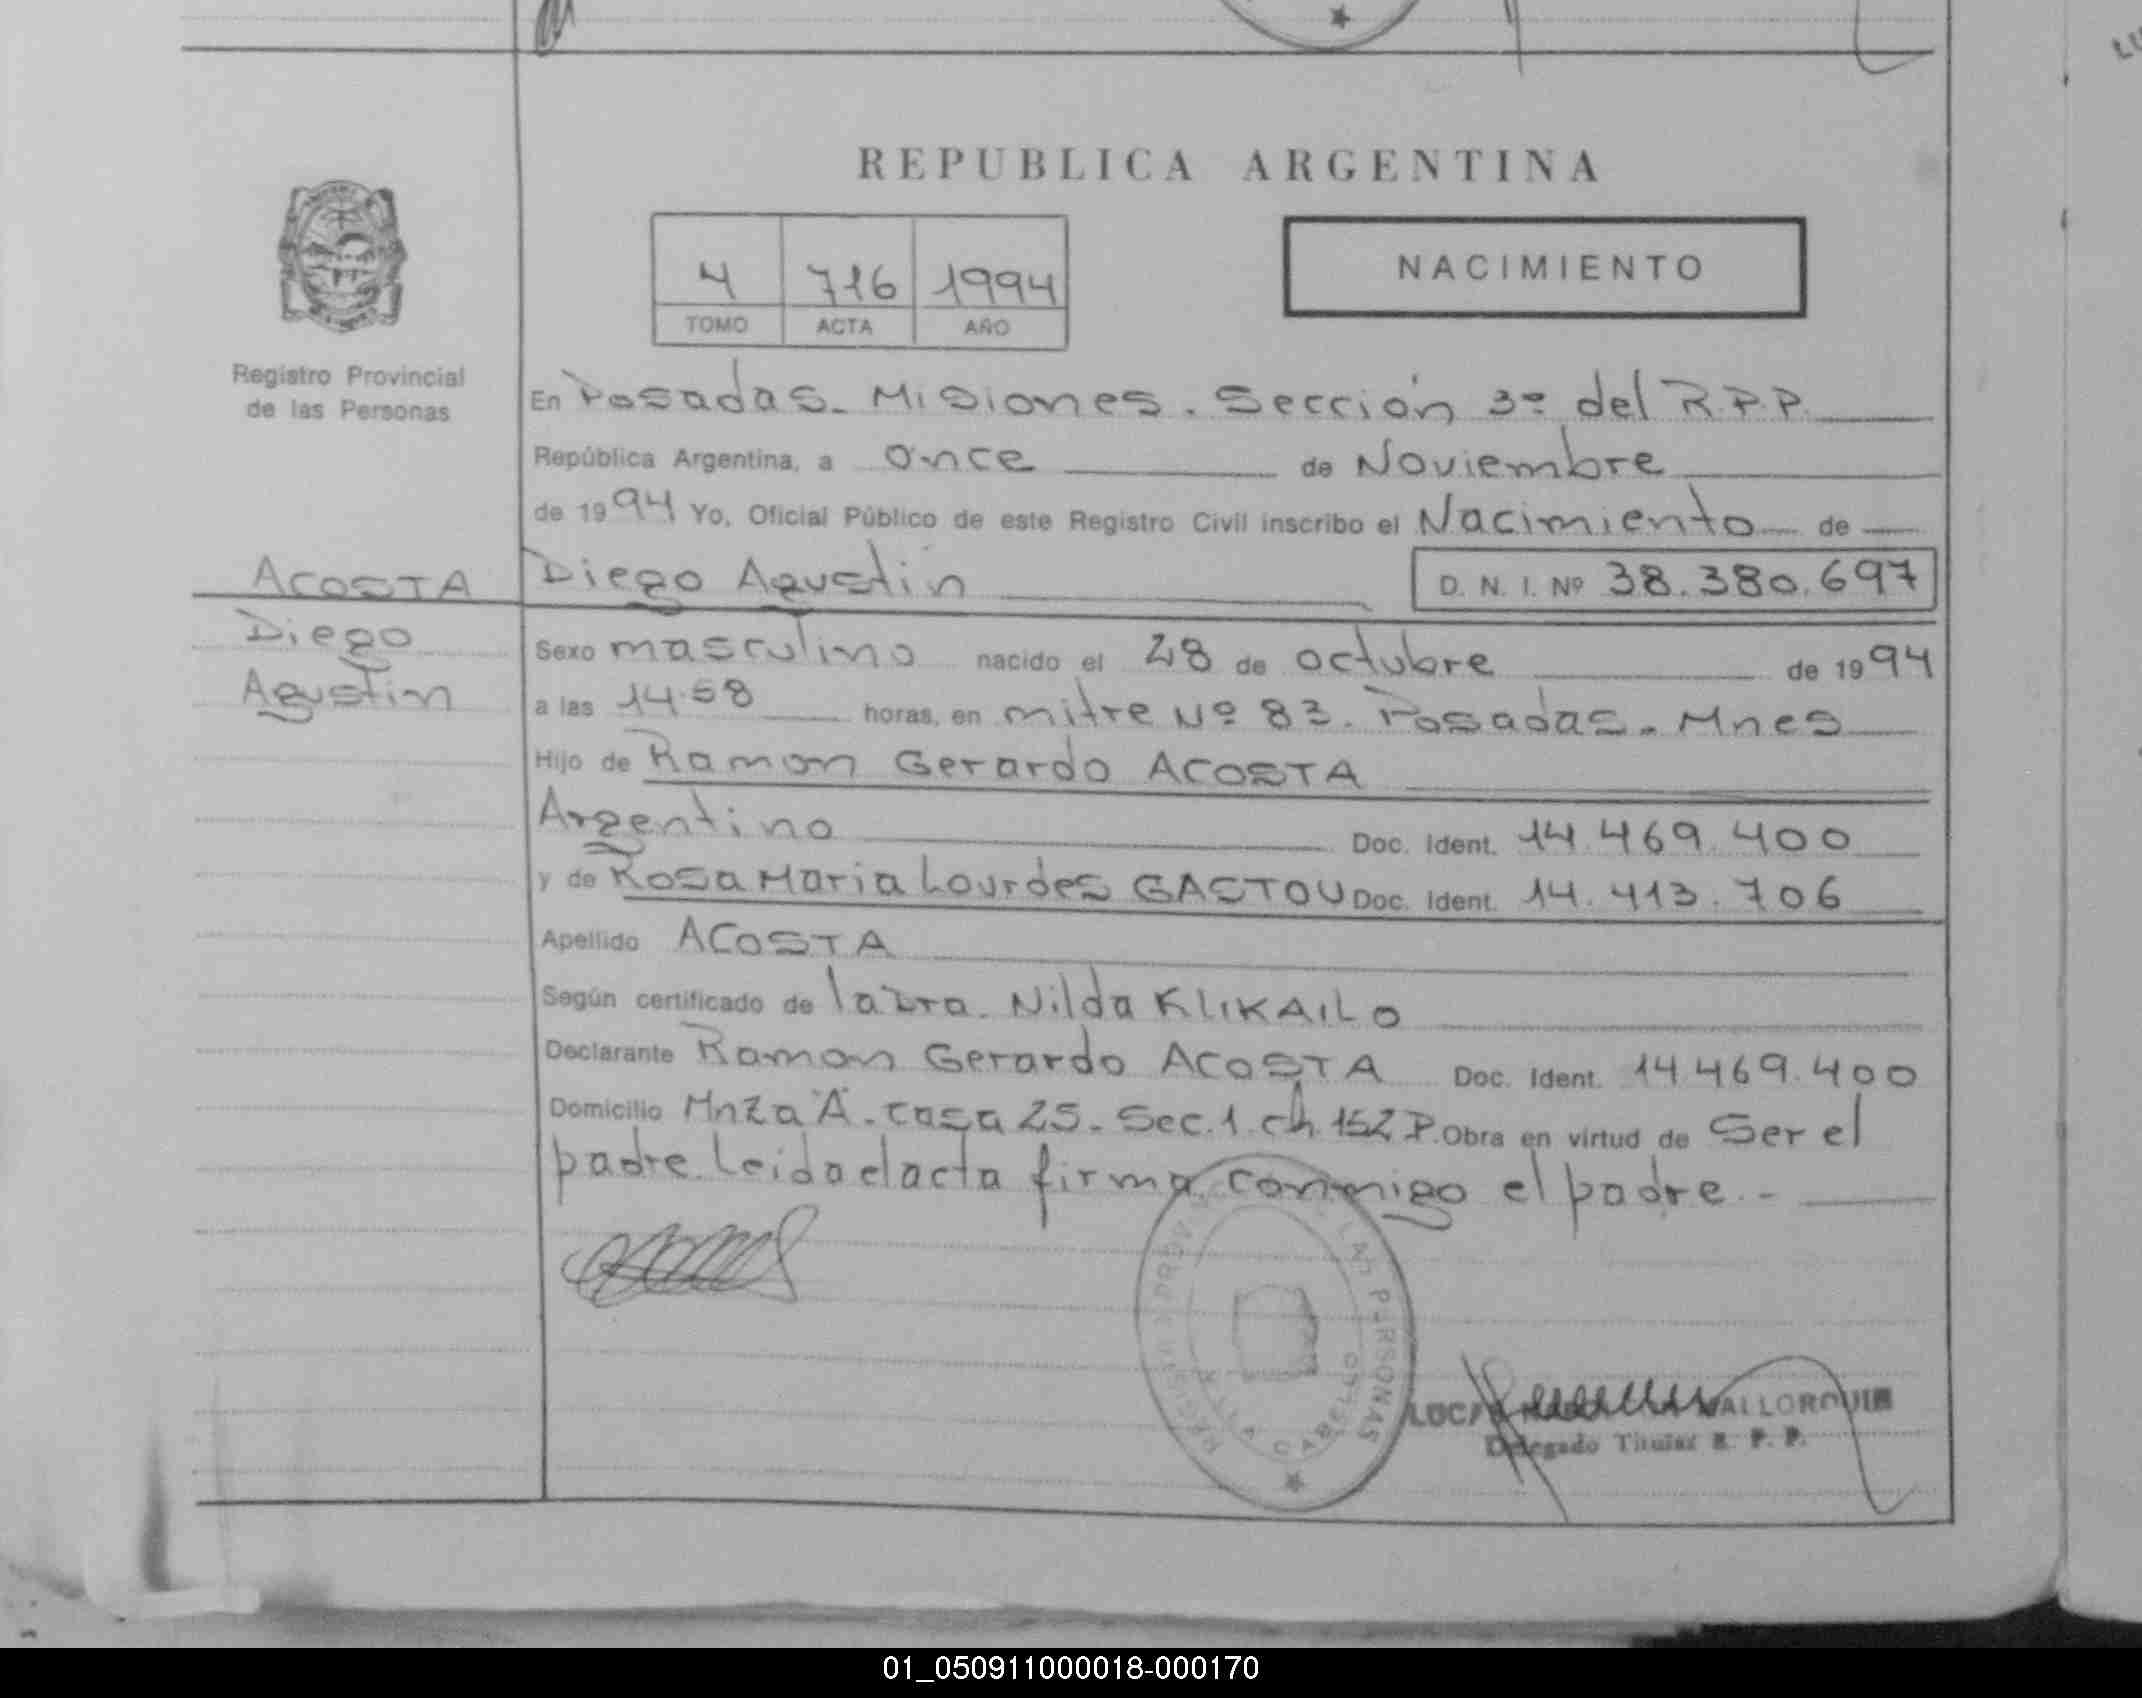 REPUBLICA ARGENTINA
4 716 1994
TOMO ACTA AÑO
NACIMIENTO
Registro Provincial
de las Personas
En Posadas - Misiones. Sección 3º del R.P.P.
República Argentina, a once de Noviembre
de 1994 Yo, Oficial Público de este Registro Civil inscribo el Nacimiento de
Diego Agustin D. N. I. Nº 38.380.697
ACOSTA
Diego
Agustin
Sexo masculino nacido el 28 de octubre de 1994
a las 14.58 horas, en mitre Nº 83. Posadas - Mnes
Hijo de Ramon Gerardo ACOSTA
Argentino Doc. Ident. 14.469.400
y de Rosa Maria Lourdes GASTOU Doc. Ident. 14.413.706
Apellido ACOSTA
Según certificado de la Dra. Nilda KLIKAILO
Declarante Ramon Gerardo ACOSTA Doc. Ident. 14.469.400
Domicilio Mnza "A". casa 25. Sec. 1. ch. 152 P. Obra en virtud de Ser el
padre. Leida el acta firma conmigo el padre. -
PERSONAS
VALLORQUIN
Delegado Titular R. P. P.
01_050911000018-000170